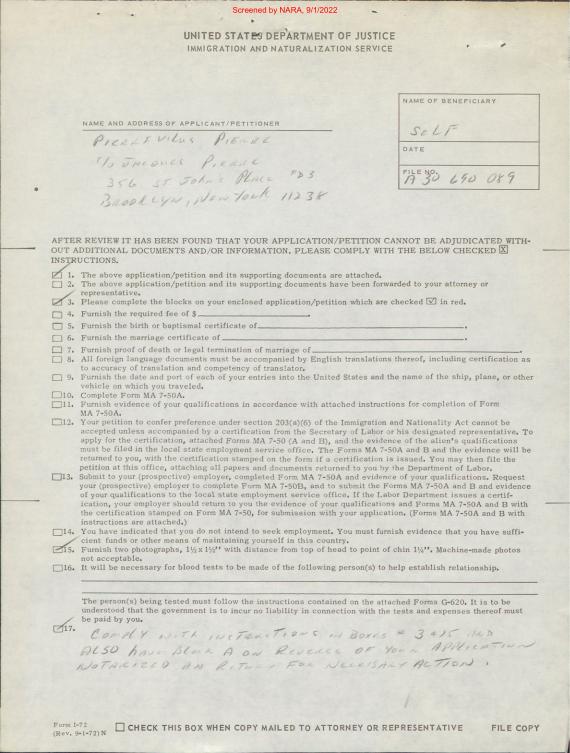 Screened by NARA, 9/1/2022
UNITED STATES DEPARTMENT OF JUSTICE
IMMIGRATION AND NATURALIZATION SERVICE
NAME OF BENEFICIARY
SELF
NAME AND ADDRESS OF APPLICANT/PETITIONER
PIERREVILUS PIERRE
DATE
c/o JACQUES PIERRE
FILE NO.
A 30 690 089
356 ST JOHN'S PLACE #D3
BROOKLYN, NEW YORK 11238
AFTER REVIEW IT HAS BEEN FOUND THAT YOUR APPLICATION/PETITION CANNOT BE ADJUDICATED WITH-
OUT ADDITIONAL DOCUMENTS AND/OR INFORMATION. PLEASE COMPLY WITH THE BELOW CHECKED X
INSTRUCTIONS.
1. The above application/petition and its supporting documents are attached.
2. The above application/petition and its supporting documents have been forwarded to your attorney or
representative.
3. Please complete the blocks on your enclosed application/petition which are checked ☑ in red.
4. Furnish the required fee of $
5. Furnish the birth or baptismal certificate of
6. Furnish the marriage certificate of
7. Furnish proof of death or legal termination of marriage of
8. All foreign language documents must be accompanied by English translations thereof, including certification as
to accuracy of translation and competency of translator.
9. Furnish the date and port of each of your entries into the United States and the name of the ship, plane, or other
vehicle on which you traveled.
10. Complete Form MA 7-50A.
11. Furnish evidence of your qualifications in accordance with attached instructions for completion of Form
MA 7-50A.
12. Your petition to confer preference under section 203(a)(6) of the Immigration and Nationality Act cannot be
accepted unless accompanied by a certification from the Secretary of Labor or his designated representative. To
apply for the certification, attached Forms MA 7-50 (A and B), and the evidence of the alien's qualifications
must be filed in the local state employment service office. The Forms MA 7-50A and B and the evidence will be
returned to you, with the certification stamped on the form if a certification is issued. You may then file the
petition at this office, attaching all papers and documents returned to you by the Department of Labor.
13. Submit to your (prospective) employer, completed Form MA 7-50A and evidence of your qualifications. Request
your (prospective) employer to complete Form MA 7-50B, and to submit the Forms MA 7-50A and B and evidence
of your qualifications to the local state employment service office. If the Labor Department issues a certif-
ication, your employer should return to you the evidence of your qualifications and Forms MA 7-50A and B with
the certification stamped on Form MA 7-50A, for submission with your application. (Forms MA 7-50A and B with
instructions are attached.)
14. You have indicated that you do not intend to seek employment. You must furnish evidence that you have suffi-
cient funds or other means of maintaining yourself in this country.
15. Furnish two photographs, 1½ x 1½" with distance from top of head to point of chin 1¼". Machine-made photos
not acceptable.
16. It will be necessary for blood tests to be made of the following person(s) to help establish relationship.
The person(s) being tested must follow the instructions contained on the attached Forms G-620. It is to be
understood that the government is to incur no liability in connection with the tests and expenses thereof must
be paid by you.
17. COMPLY WITH INSTRUCTIONS IN BOXES # 3 & 15 AND
ALSO HAVE BLOCK A ON REVERSE OF YOUR APPLICATION
NOTARIZED AN RETURN FOR NECESSARY ACTION.
Form I-72
(Rev. 9-1-72) N
CHECK THIS BOX WHEN COPY MAILED TO ATTORNEY OR REPRESENTATIVE
FILE COPY